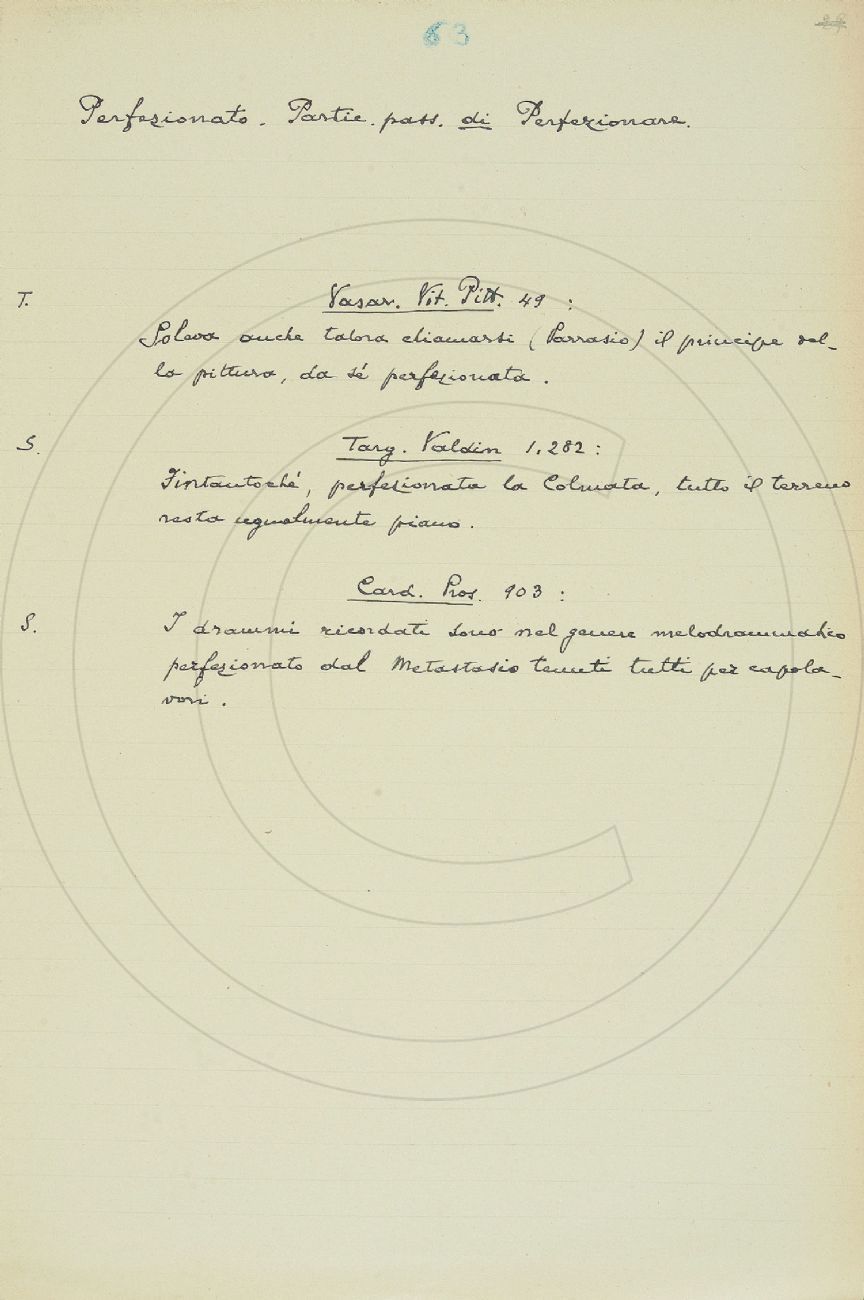 63
Perfezionato. Partic. pass. di Perfezionare.
T.
Vasar. Vit. Pitt. 49 :
Soleva anche talora chiamarsi (Parrasio) il principe del-
la pittura, da sé perfezionata.
S.
Targ. Valdin 1.282 :
Fintantoché, perfezionata la Colmata, tutto il terreno
resta ugualmente piano.
Card. Pros. 903 :
S.
I drammi ricordati sono nel genere melodrammatico
perfezionato dal Metastasio tenuti tutti per capola-
vori.